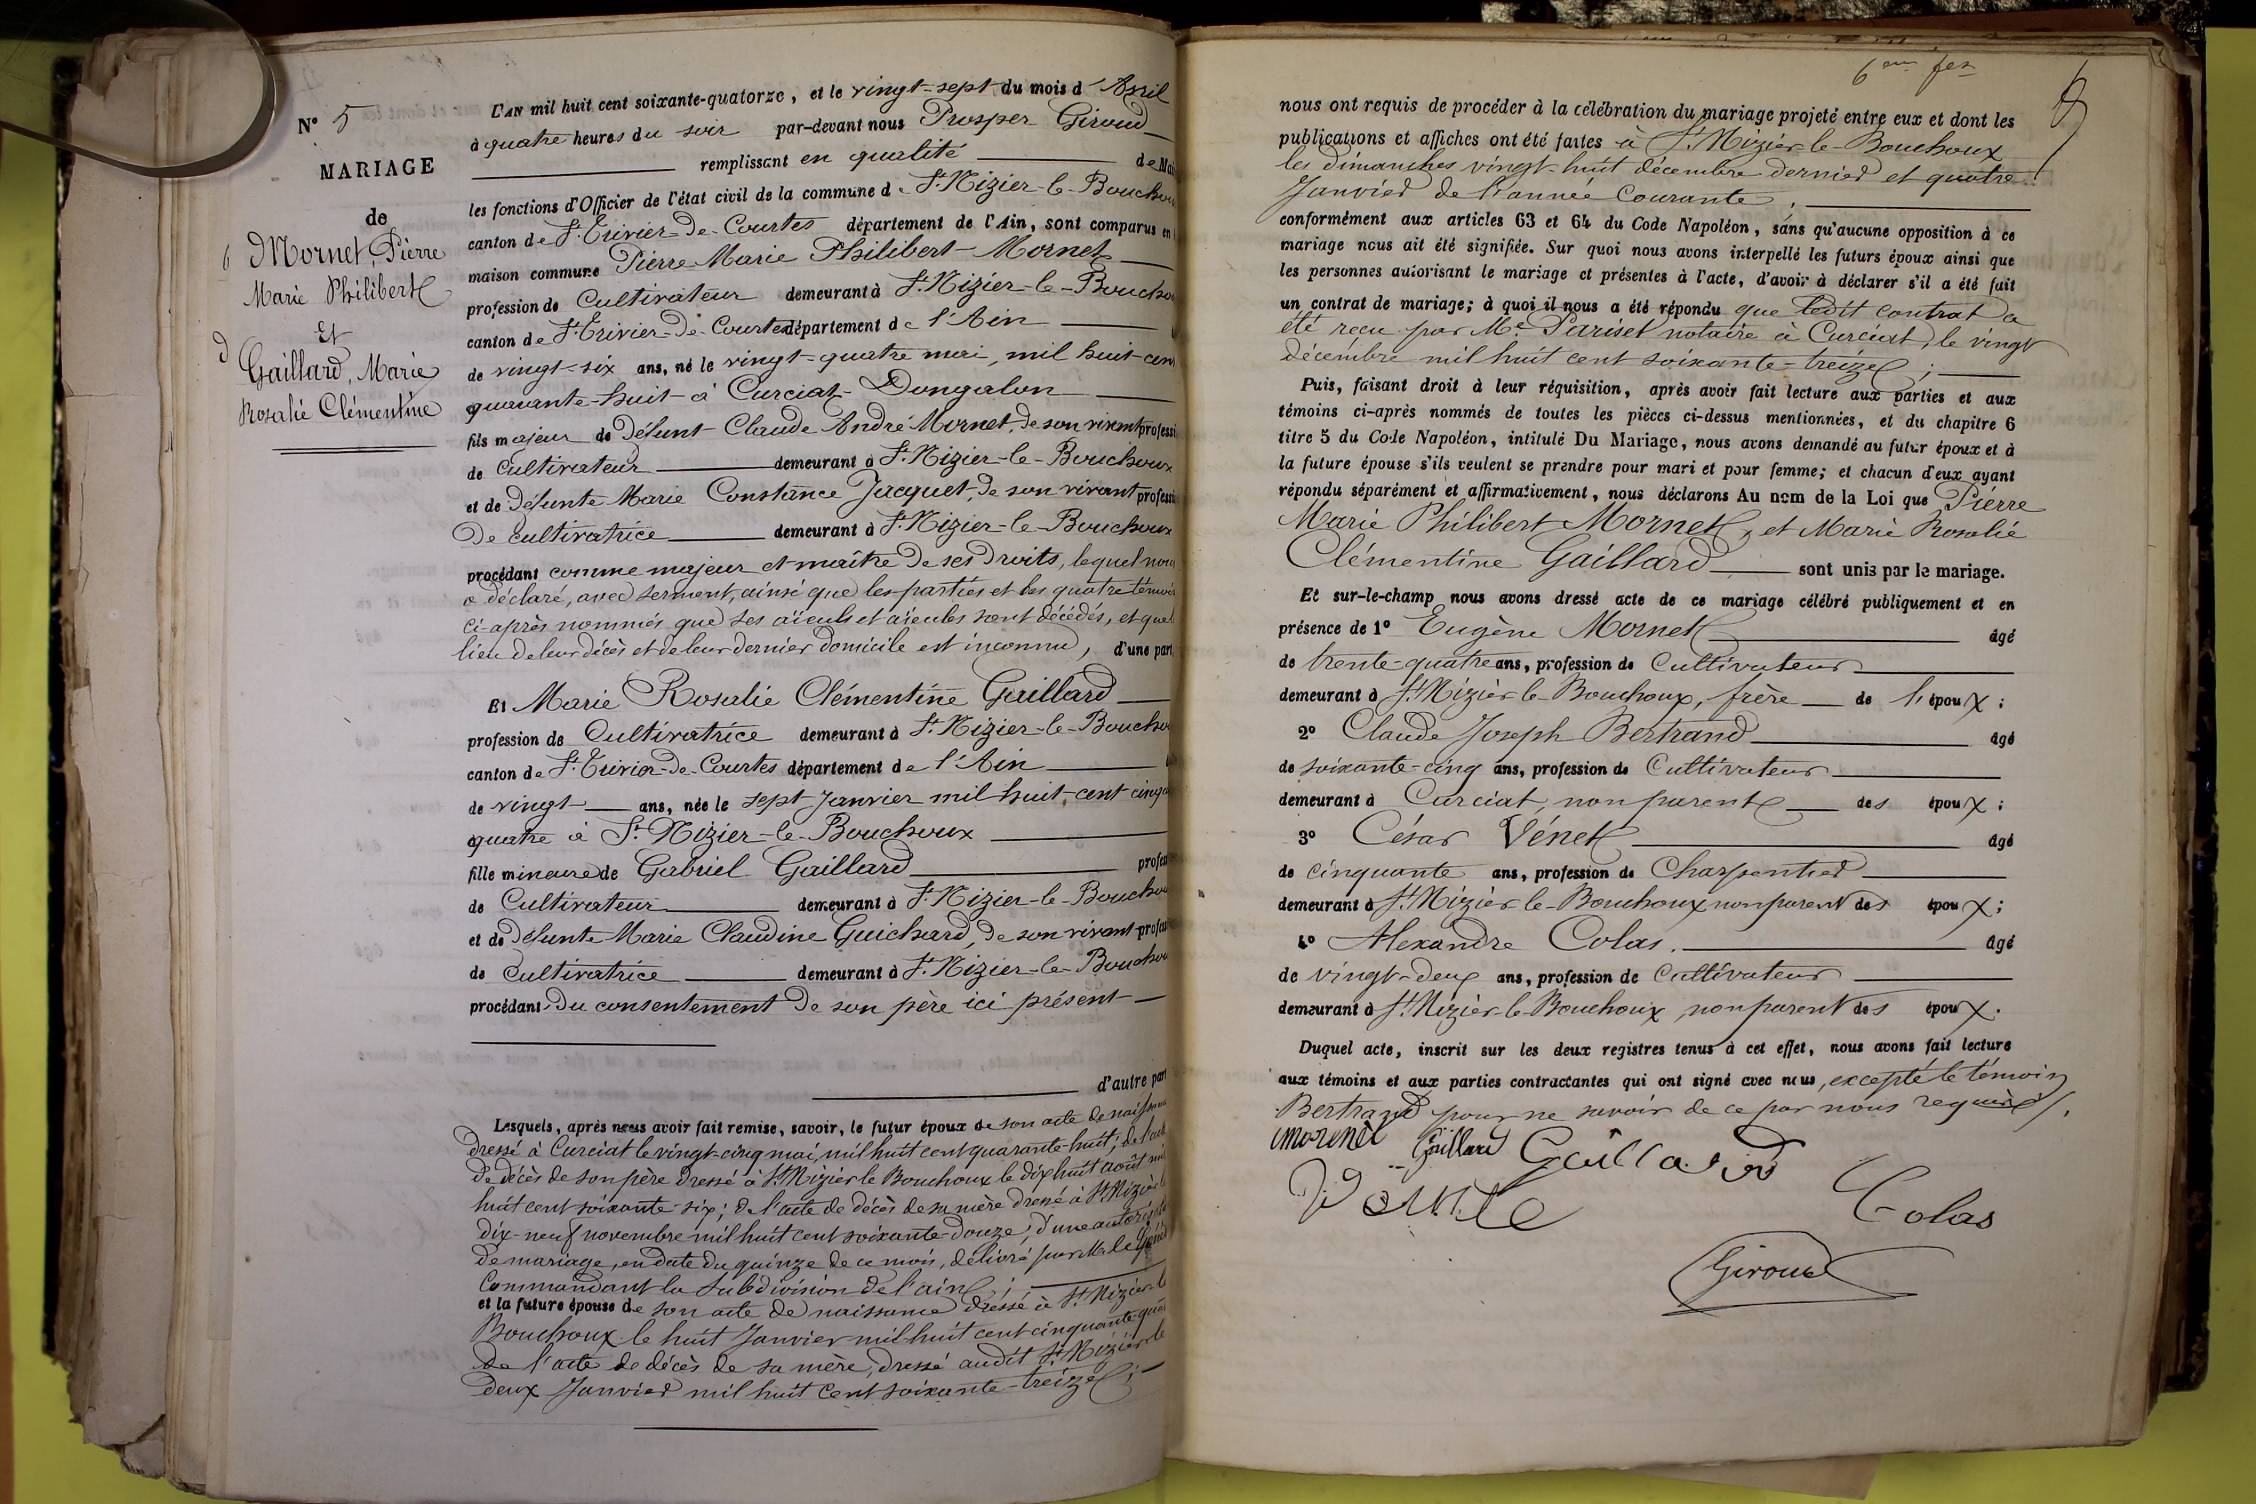 N° 5
MARIAGE
de
Mornet, Pierre
Marie Philibert
Et
Gaillard, Marie
Rosalie Clémentine
L'AN mil huit cent soixante-quatorze, et le vingt-sept du mois d'Avril
à quatre heures du soir par-devant nous Prosper Giroud
remplissant en qualité de Mai
les fonctions d'Officier de l'état civil de la commune de St Nizier-le-Bouchou
canton de St Trivier-de-Courtes département de l'Ain, sont comparus en
maison commune Pierre Marie Philibert Mornet
profession de Cultivateur demeurant à St Nizier-le-Boucho
canton de St Trivier-de-Courtes département de l'Ain
de vingt-six ans, né le vingt-quatre mai, mil huit-cen
quarante-huit à Curciat-Dongalon
fils majeur de défunt Claude André Mornet, de son vivant professi
de Cultivateur demeurant à St Nizier-le-Bouchoux
et de défunte Marie Constance Jacquet, de son vivant professi
de cultivatrice demeurant à St Nizier-le-Bouchoux
procédant comme majeur et maître de ses droits, lequel nous
a déclaré, avec serment, ainsi que les parties et les quatre témoi
ci-après nommés que ses aïeuls et aïeules sont décédés, et que l
lieu de leur décès et de leur dernier domicile est inconnu, d'une part
Et Marie Rosalie Clémentine Gaillard
profession de Cultivatrice demeurant à St Nizier-le-Boucho
canton de St Trivier-de-Courtes département de l'Ain
de vingt ans, née le sept Janvier mil huit-cent cinqu
quatre à St Nizier-le-Bouchoux
fille mineure de Gabriel Gaillard profes
de Cultivateur demeurant à St Nizier-le-Bouchou
et de défunte Marie Claudine Guichard, de son vivant profes
de Cultivatrice demeurant à St Nizier-le-Bouchou
procédant du consentement de son père ici présent
d'autre part
Lesquels, après nous avoir fait remise, savoir, le futur époux de son acte de naissance
dressé à Curciat le vingt-cinq mai, mil huit cent quarante-huit; de l'acte
de décès de son père dressé à St Nizier le Bouchoux le dix huit août mil
huit cent soixante-six; de l'acte de décès de sa mère dressé à St Nizier l
dix-neuf novembre mil huit cent soixante-douze; d'une autoris
de mariage, en date du quinze de ce mois, délivré par Mr le Géné
Commandant la Subdivision de l'ain;
et la future épouse de son acte de naissance dressé à St Nizier le
Bouchoux le huit Janvier mil huit cent cinquante-quat
de l'acte de décès de sa mère, dressé audit St Nizier le
deux Janvier mil huit cent soixante-treize;
6eme fer
nous ont requis de procéder à la célébration du mariage projeté entre eux et dont les
publications et affiches ont été faites à St Nizier-le-Bouchoux
les dimanches vingt-huit décembre dernier et quatre
Janvier de l'année Courante,
conformément aux articles 63 et 64 du Code Napoléon, sans qu'aucune opposition à ce
mariage nous ait été signifiée. Sur quoi nous avons interpellé les futurs époux ainsi que
les personnes autorisant le mariage et présentes à l'acte, d'avoir à déclarer s'il a été fait
un contrat de mariage; à quoi il nous a été répondu que ledit contrat a
été reçu par Me Pariset notaire à Curciat, le vingt
décembre mil huit cent soixante-treize;
Puis, faisant droit à leur réquisition, après avoir fait lecture aux parties et aux
témoins ci-après nommés de toutes les pièces ci-dessus mentionnées, et du chapitre 6
titre 5 du Code Napoléon, intitulé Du Mariage, nous avons demandé au futur époux et à
la future épouse s'ils veulent se prendre pour mari et pour femme; et chacun d'eux ayant
répondu séparément et affirmativement, nous déclarons Au nom de la Loi que Pierre
Marie Philibert Mornet, et Marie Rosalie
Clémentine Gaillard sont unis par le mariage.
Et sur-le-champ nous avons dressé acte de ce mariage célébré publiquement et en
présence de 1° Eugène Mornet âgé
de trente-quatre ans, profession de Cultivateur
demeurant à St Nizier-le-Bouchoux, frère de l'époux;
2° Claude Joseph Bertrand âgé
de soixante-cinq ans, profession de Cultivateur
demeurant à Curciat, non parent des époux;
3° César Vénet âgé
de cinquante ans, profession de Charpentier
demeurant à St Nizier-le-Bouchoux non parent des époux;
4° Alexandre Colas. âgé
de vingt-deux ans, profession de Cultivateur
demeurant à St Nizier-le-Bouchoux, non parent des époux.
Duquel acte, inscrit sur les deux registres tenus à cet effet, nous avons fait lecture
aux témoins et aux parties contractantes qui ont signé avec nous, excepté le témoin
Bertrand pour ne savoir de ce par nous requis.
mornet Gaillard Gaillard
Colas
Giroud